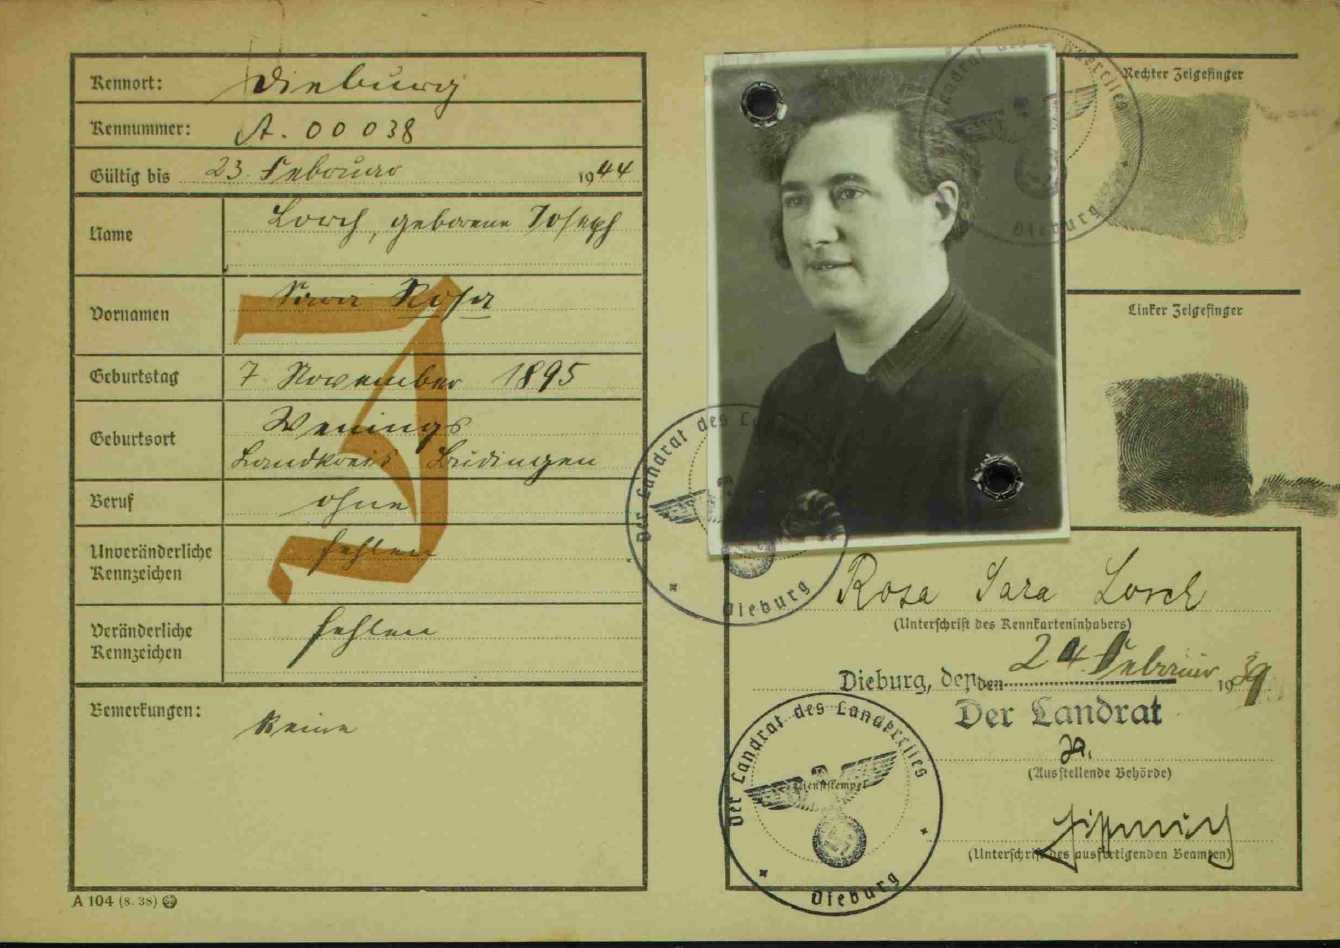 Kennort: Dieburg
Kennummer: A. 00038
Gültig bis 23. Februar 1944
Name Lorch, geborene Joseph
Vornamen Sara Rosa
Geburtstag 7. November 1895
Geburtsort Wenings
Landkreis Büdingen
Beruf ohne
Unveränderliche Kennzeichen fehlen
Veränderliche Kennzeichen fehlen
Bemerkungen: Keine
J
A 104 (8. 38)
Rechter Zeigefinger
Linker Zeigefinger
Der Landrat des Landkreises
Dieburg
Der Landrat des
Dieburg
Rosa Sara Lorch
(Unterschrift des Kennkarteninhabers)
Dieburg, den den 24. Februar 1939
Der Landrat
(Ausstellende Behörde)
(Unterschrift des ausfertigenden Beamten)
Der Landrat des Landkreises
Dienststempel
Dieburg